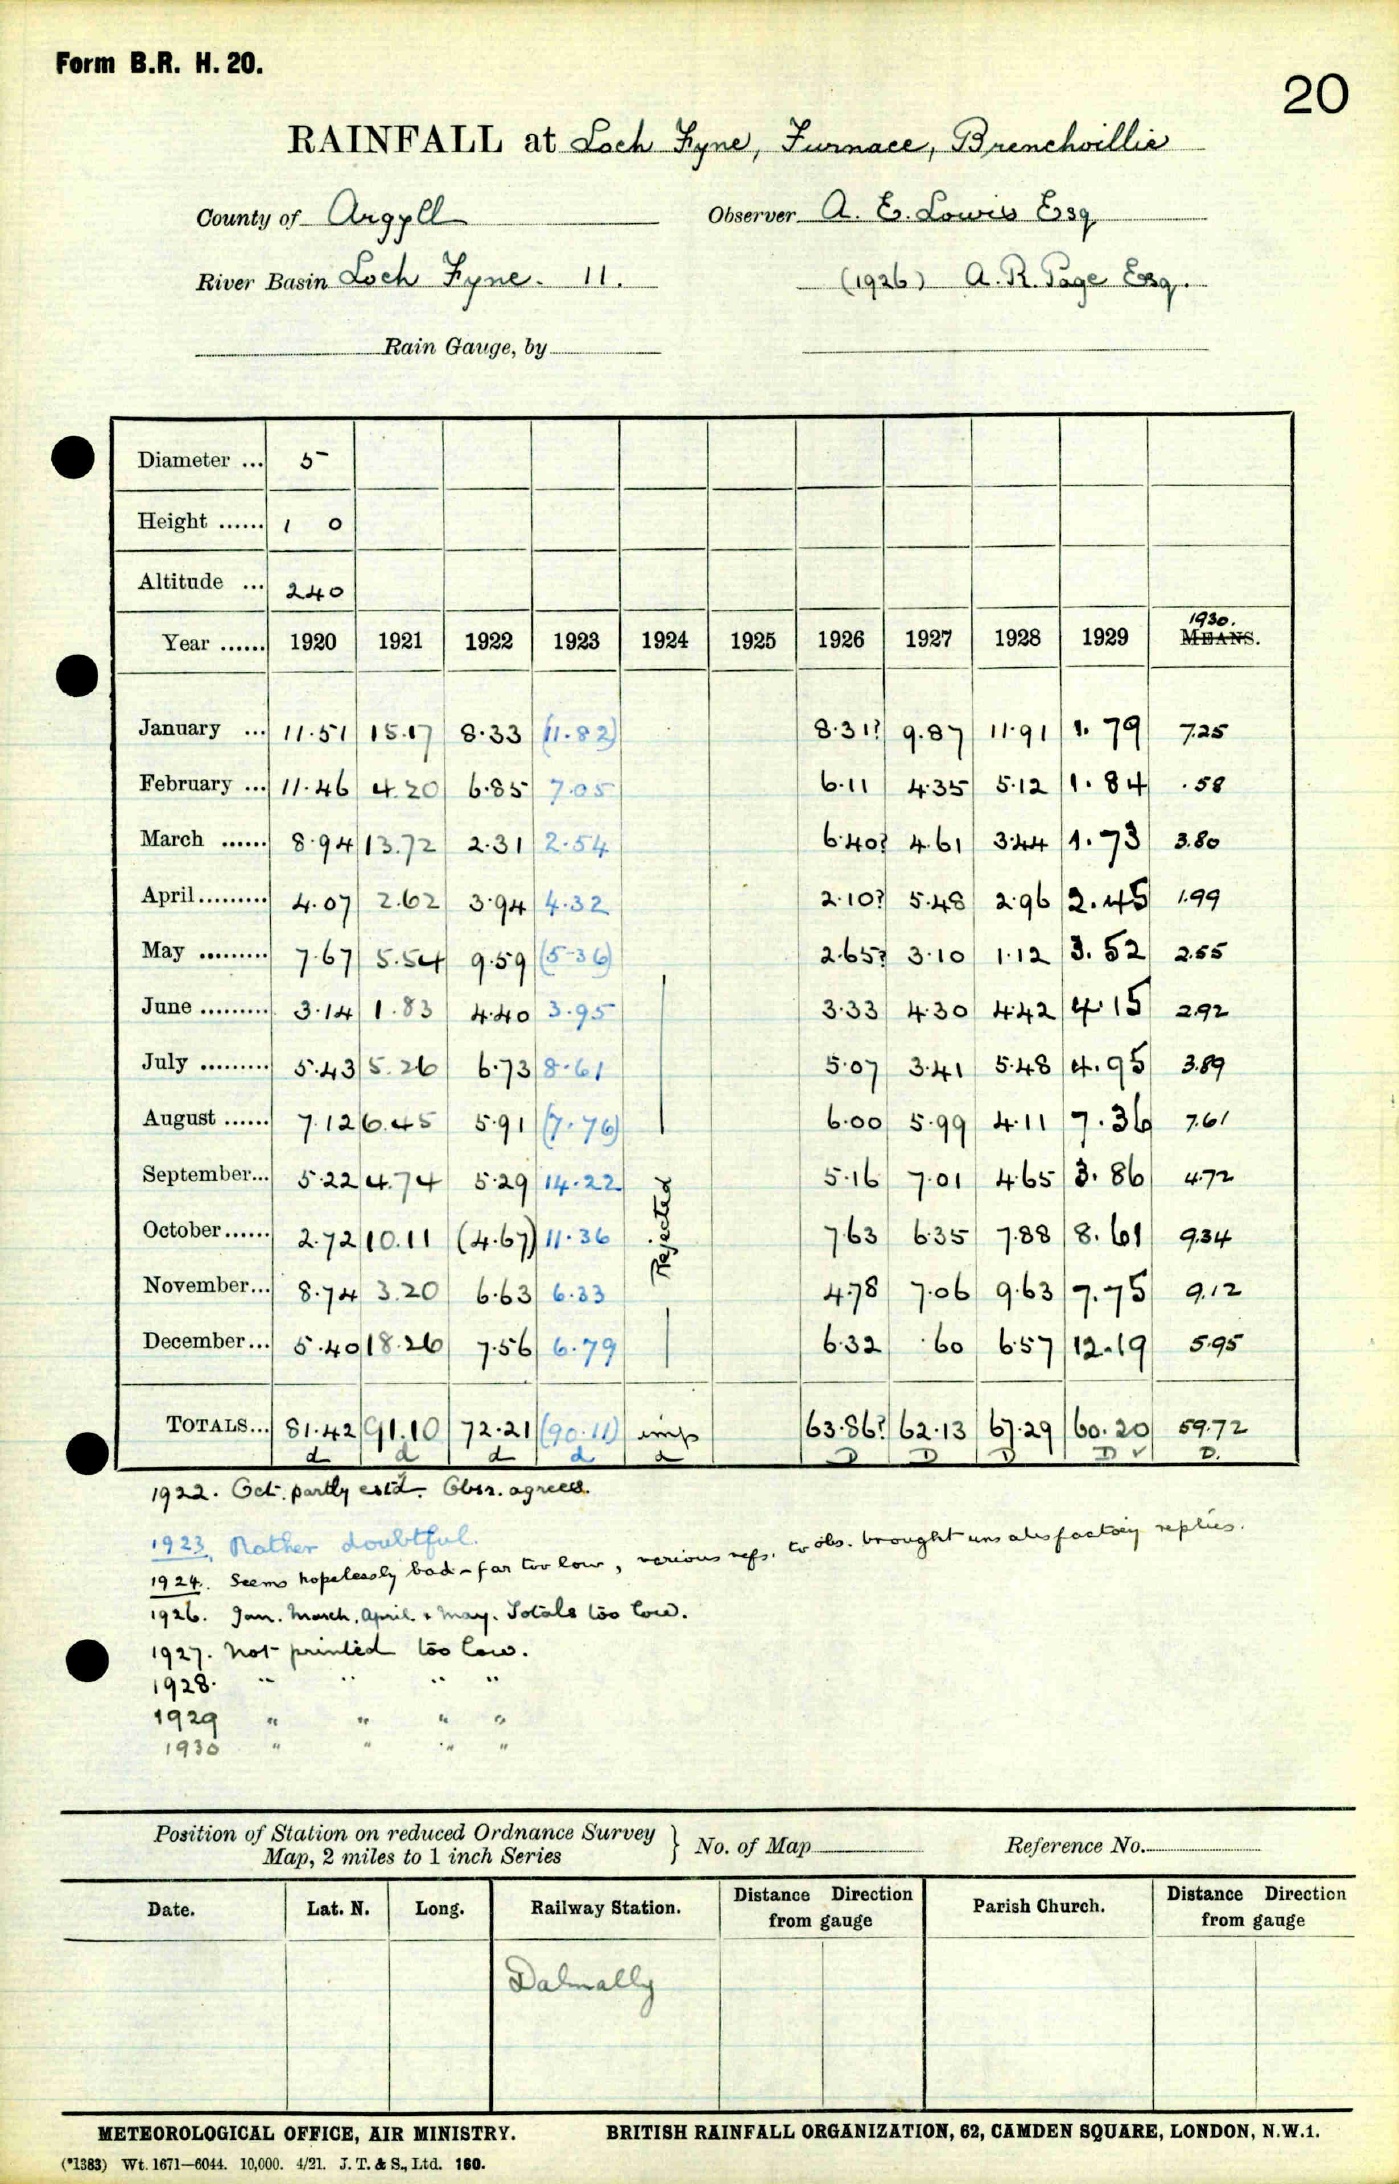 Form B.R. H. 20.
20
RAINFALL at Loch Fyne, Furnace, Brenchoillie
County of Argyll Observer A. E. Lowis Esq
River Basin Loch Fyne. 11. (1926) A. R. Page Esq.
Rain Gauge, by
Diameter ... 5
Height ...... 1 0
Altitude ... 240
1930.
Year ...... 1920 1921 1922 1923 1924 1925 1926 1927 1928 1929 MEANS.
January ... 11.51 15.17 8.33 (11.82) 8.31? 9.87 11.91 1.79 7.25
February ... 11.46 4.20 6.85 7.05 6.11 4.35 5.12 1.84 .58
March ...... 8.94 13.72 2.31 2.54 6.40? 4.61 3.44 1.73 3.80
April......... 4.07 2.62 3.94 4.32 2.10? 5.48 2.96 2.45 1.99
May ......... 7.67 5.54 9.59 (5.36) 2.65? 3.10 1.12 3.52 2.55
June ......... 3.14 1.83 4.40 3.95 3.33 4.30 4.42 4.15 2.92
July ......... 5.43 5.26 6.73 8.61 5.07 3.41 5.48 4.95 3.89
August ...... 7.12 6.45 5.91 (7.76) 6.00 5.99 4.11 7.36 7.61
September... 5.22 4.74 5.29 14.22 Rejected 5.16 7.01 4.65 3.86 4.72
October...... 2.72 10.11 (4.67) 11.36 7.63 6.35 7.88 8.61 9.34
November... 8.74 3.20 6.63 6.33 4.78 7.06 9.63 7.75 9.12
December... 5.40 18.26 7.56 6.79 6.32 .60 6.57 12.19 5.95
TOTALS... 81.42 91.10 72.21 (90.11) imp 63.86? 62.13 67.29 60.20 59.72
d d d d d D D D D ✓ D.
1922. Oct. partly estd. Obsr. agrees.
1923. Rather doubtful.
1924. Seems hopelessly bad - far too low, various refs. to obs. brought unsatisfactory replies.
1926. Jan. March. April. & May. Totals too low.
1927. Not printed too low.
1928. " " " "
1929 " " " "
1930 " " " "
Position of Station on reduced Ordnance Survey
Map, 2 miles to 1 inch Series } No. of Map Reference No.
Date. Lat. N. Long. Railway Station. Distance Direction from gauge Parish Church. Distance Direction from gauge
Dalmally
METEOROLOGICAL OFFICE, AIR MINISTRY. BRITISH RAINFALL ORGANIZATION, 62, CAMDEN SQUARE, LONDON, N.W.1.
(*1383) Wt. 1671—6044. 10,000. 4/21. J. T. & S., Ltd. 160.